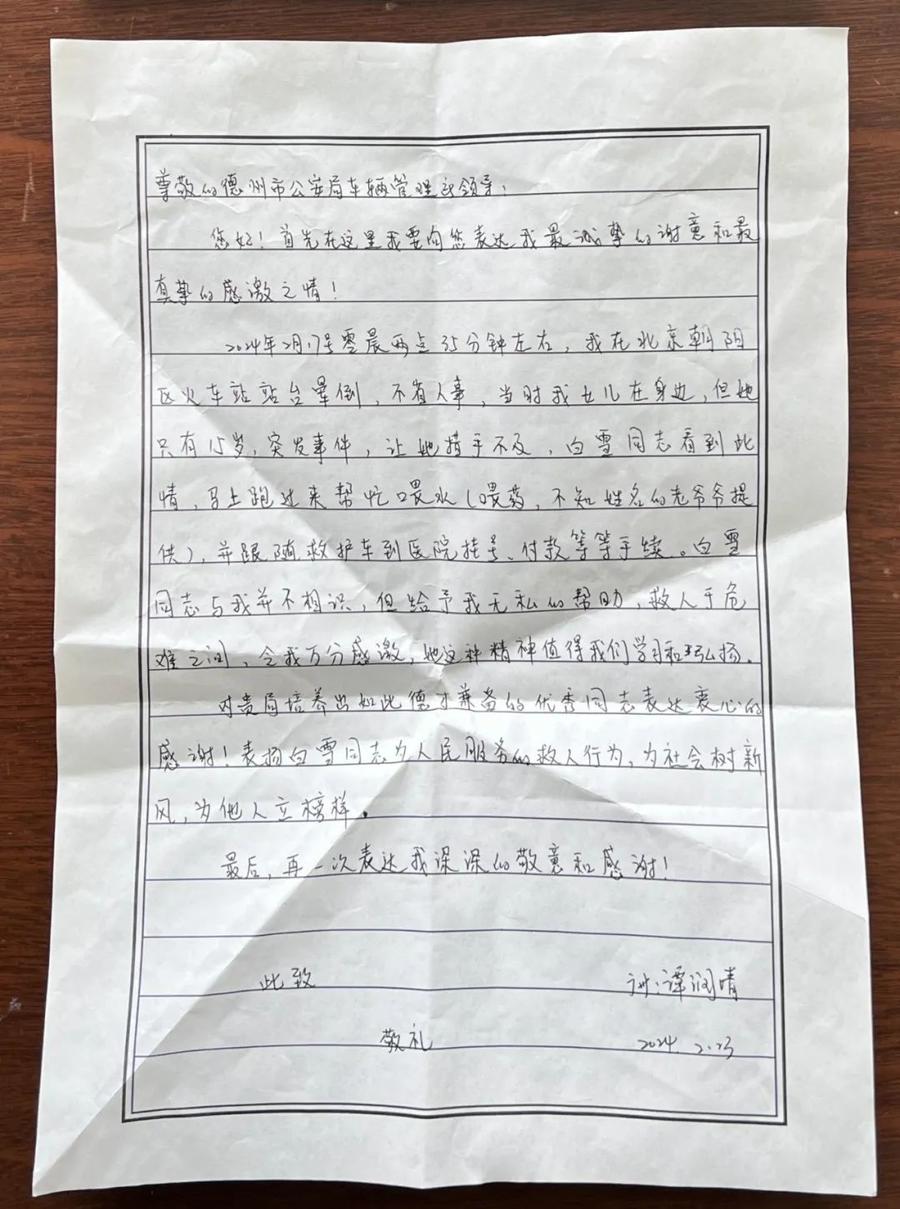 尊敬的德州市公安局车辆管理所领导:
您好!首先在这里我要向您表达我最诚挚的谢意和最
真挚的感激之情!
2024年2月17号零晨两点35分钟左右,我在北京朝阳
区火车站站台晕倒,不省人事,当时我女儿在身边,但她
只有15岁,突发事件,让她措手不及,白雪同志看到此
情,马上跑过来帮忙喂水(喂药,不知姓名的老爷爷提
供),并跟随救护车到医院挂号、付款等等手续。白雪
同志与我并不相识,但给予我无私的帮助,救人于危
难之间,令我万分感激,她这种精神值得我们学习和弘扬。
对贵局培养出如此德才兼备的优秀同志表达衷心的
感谢!表扬白雪同志为人民服务的救人行为,为社会树新
风,为他人立榜样。
最后,再一次表达我深深的敬意和感谢!
此致
谭润晴
敬礼
2024.2.23